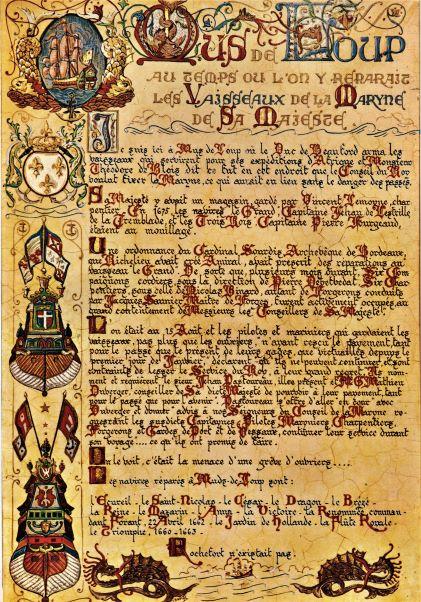 Mus de Loup
au temps où l'on y réparait
les Vaisseaux de la Maryne
de Sa Majesté
Je suis ici à Mus de Loup où le Duc de Beaufort arma les
vaisseaux qui servirent pour ses expéditions d'Afrique et Monsieur
Théodore de Blois dit be tut en cet endroit que le Conseil du Roy
voulait fixer la Maryne, ce qui aurait eu lieu sans le danger des passes.
Sa Majesté y avait un magasin gardé par Vincent Lemoyne, char-
pentier. En 1675 les navires le Grand, Capitaine Jehan de
Tremblade, et les Trois Rois, Capitaine Pierre Fourgeaud,
étaient au mouillage.
Une ordonnance du Cardinal Sourdis, Archevêque de Bordeaux,
que Richelieu avait créé Amiral, avait prescrit des réparations au
vaisseau le Grand. De sorte que plusieurs mois durant,
sous la direction de Pierre
sous celle de Nicolas Binard, autant de forgerons conduits
par Jacques Saunier Maître de Forges, furent activement occupés au
grand contentement de Messieurs les Conseillers de Sa Majesté.
L'on était au 15 Août et les pilotes et mariniers qui gardaient les
vaisseaux, pas plus que les ouvriers, n'ayant reçu le payement, tant
pour le passé que le présent de leurs gages, que victuailles depuis le
premier jour de Janvier, déclarent qu'ils ne peuvent continuer, et sont
contraints de lesser le Service du Roy, à leur grand regret. Ils nom-
ment et requièrent le sieur Jehan Pastoureau, illec présent et Mathieu
Duverger, conseiller de Sa dicte Majesté de pourvoir à leur payement, tant
pour le passé que pour l'avenir. Pastoureau s'offre d'aller en cour avec
Duverger et donner advis à nos Seigneurs du Conseil de la Maryne re-
quérant les susdicts Capitaines, Pilotes, Maryniers, Charpentiers,
Forgerons et Gardes de Port et de Vessaux, continuer leur service durant
son voyage.... ce qu'ils ont promis de faire.
On le voit, c'était la menace d'une grève d'ouvriers....
Les navires réparés à Mus-de-Loup sont :
l'Ecureil - le Saint-Nicolas - le César - le Dragon - le Brézé -
la Reine - le Mazarin - l'Anna - la Victoire - la Renommée, comman-
dant Ferant, 22 Avril 1662 - le Jardin de Hollande - la Flûte Royale -
le Triomphe, 1660-1663 -
Rochefort n'existait pas.